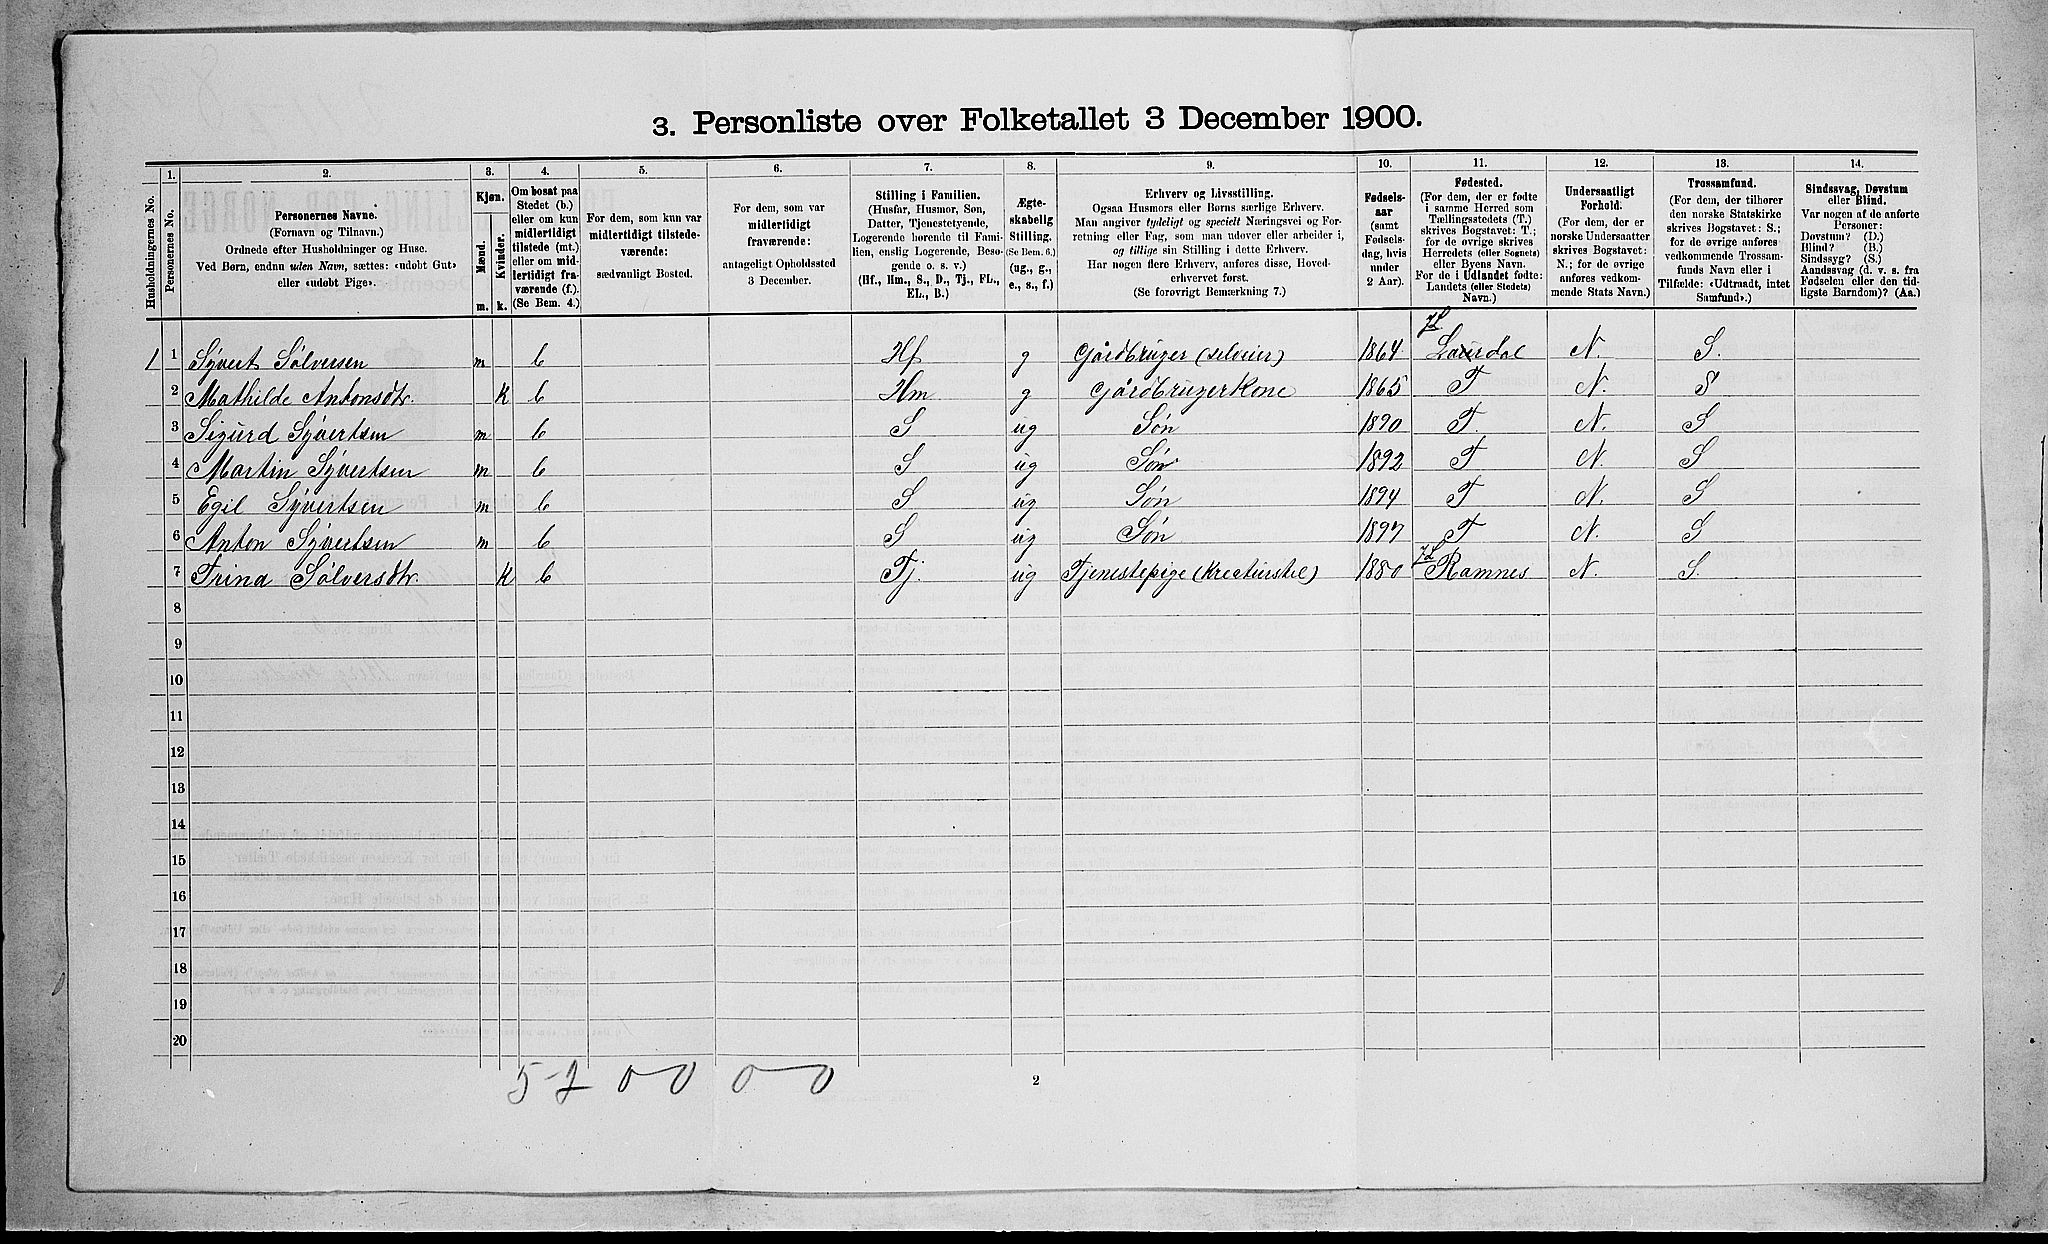 3. Personliste over Folketallet 3 December 1900.
1. 2. 3. 4. 5. 6. 7. 8. 9. 10. 11. 12. 13. 14.
Husholdningernes No.
Personernes No.
Personernes Navne.
(Fornavn og Tilnavn.)
Ordnede efter Husholdninger og Huse.
Ved Børn, endnu uden Navn, sættes: «udøbt Gut»
eller «udøbt Pige».
Kjøn.
Mænd.
Kvinder.
m. k.
Om bosat paa
Stedet (b.)
eller om kun
midlertidigt
tilstede (mt.)
eller om mid-
lertidigt fra-
værende (f.)
(Se Bem. 4.)
For dem, som kun var
midlertidigt tilstede-
værende:
sædvanligt Bosted.
For dem, som var
midlertidigt
fraværende:
antageligt Opholdssted
3 December.
Stilling i Familien.
(Husfar, Husmor, Søn,
Datter, Tjenestetyende,
Logerende hørende til Fami-
lien, enslig Logerende, Besø-
gende o. s. v.)
(Hf., Hm., S., D., Tj., FL.,
EL., B.)
Ægte-
skabelig
Stilling.
(Se Bem. 6.)
(ug., g.,
e., s., f.)
Erhverv og Livsstilling.
Ogsaa Husmors eller Børns særlige Erhverv.
Man angiver tydeligt og specielt Næringsvei og For-
retning eller Fag, som man udøver eller arbeider i,
og tillige sin Stilling i dette Erhverv.
Har nogen flere Erhverv, anføres disse, Hoved-
erhvervet først.
(Se forøvrigt Bemærkning 7.)
Fødsels-
aar
(samt
Fødsels-
dag, hvis
under
2 Aar).
Fødested.
(For dem, der er fødte
i samme Herred som
Tællingsstedets (T.)
skrives Bogstavet: T.;
for de øvrige skrives
Herredets (eller Sognets)
eller Byens Navn.
For de i Udlandet fødte:
Landets (eller Stedets)
Navn.)
Undersaatligt
Forhold.
(For dem, der er
norske Undersaatter
skrives Bogstavet:
N.; for de øvrige
anføres vedkom-
mende Stats Navn.)
Trossamfund.
(For dem, der tilhører
den norske Statskirke
skrives Bogstavet: S.;
for de øvrige anføres
vedkommende Trossam-
funds Navn eller i
Tilfælde: «Udtraadt, intet
Samfund».)
Sindssvag, Døvstum
eller Blind.
Var nogen af de anførte
Personer:
Døvstum? (D.)
Blind? (B.)
Sindssyg? (S.)
Aandssvag (d. v. s. fra
Fødselen eller den tid-
ligste Barndom)? (Aa.)
1 1 Syvert Sølversen m b Hf g Gårdbruger (selveier) 1864 Laurdal N. S.
2 Mathilde Antonsdtr. K b Hm g Gårdbrugerkone 1865 T N. S
3 Sigurd Syvertsen m b S ug Søn 1890 T. N. S
4 Martin Syvertsen m b S ug Søn 1892 T N. S
5 Egil Syvertsen m b S ug Søn 1894 T N. S
6 Anton Syvertsen m b S ug Søn 1897 T N. S
7 Trina Sølversdtr. K b Tj ug Tjenestepige (Kreaturstel) 1880 Ramnes N. S.
8
9
10
11
12
13
14
15
16
17
18
19
20
5-2 0 0 0 0
2